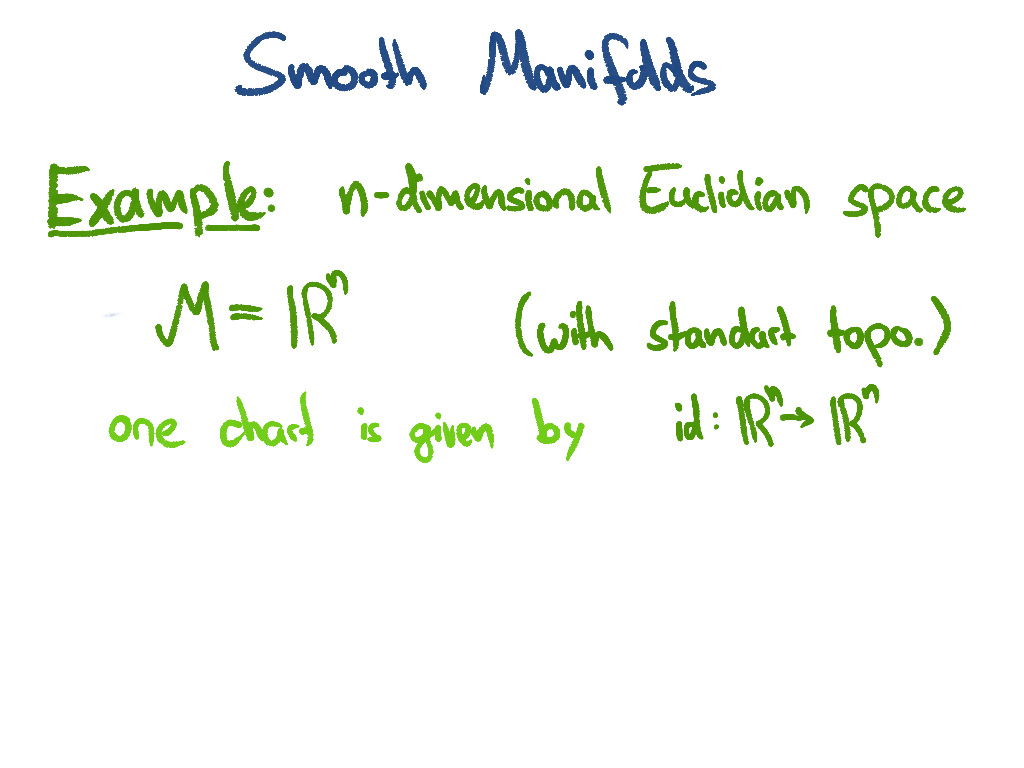 Smooth Manifolds
Example: n-dimensional Euclidian space
M = ℝⁿ (with standart topo.)
one chart is given by id: ℝⁿ → ℝⁿ